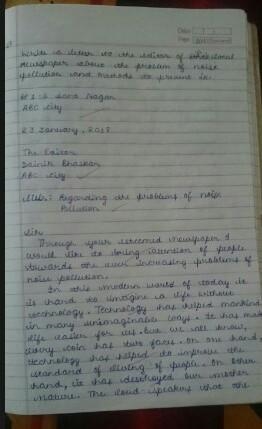 Date
Page
Write a letter to the editor of National
newspaper about the problem of noise
pollution and methods to prevent it.
Nagar
ABC city
23 January, 2018
The Editor
Dainik Bhaskar
ABC city
Sub: Regarding the problems of noise
Pollution
Sir
Through your esteemed newspaper I
would like to bring attention of people
towards the ever increasing problems of
noise pollution.
In this modern world of today it
is hard to imagine a life without
technology. Technology has helped mankind
in many unimaginable ways. It has made
life easier for us. But we all know,
every coin has two faces. On one hand,
technology has helped to improve the
standard of living of people. On other
hand, it has destroyed our mother
nature. The loud-speakers that the